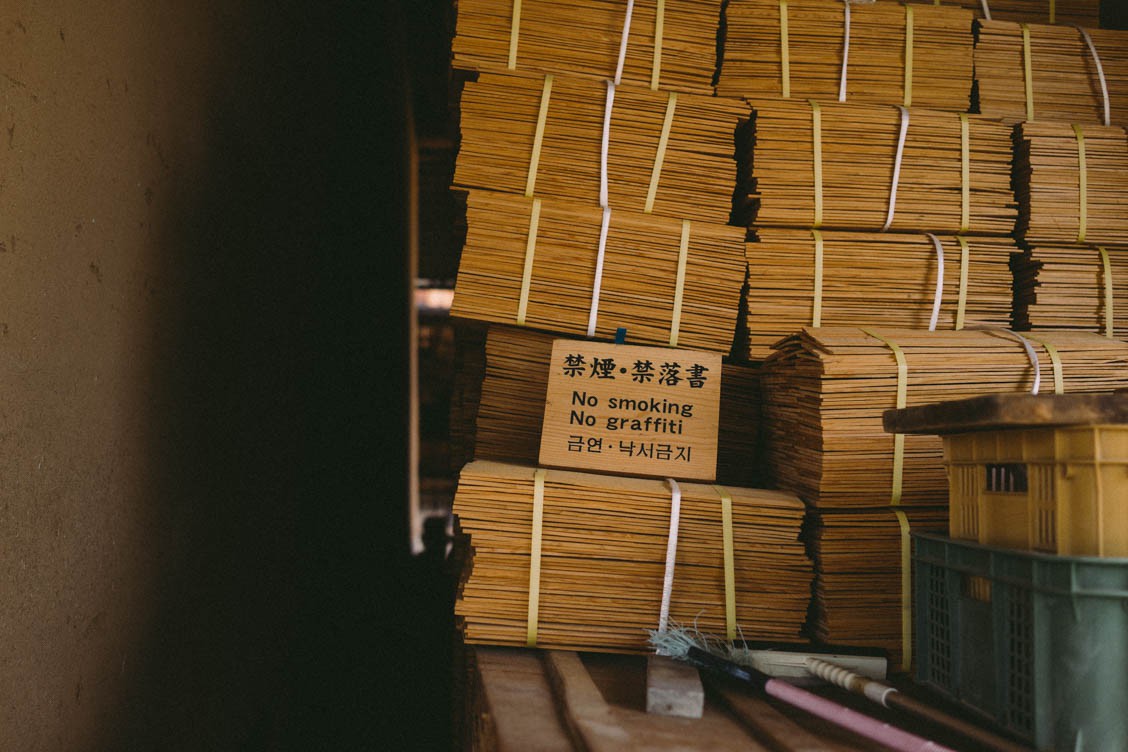 禁煙・禁落書
No smoking
No graffiti
금연·낙서금지